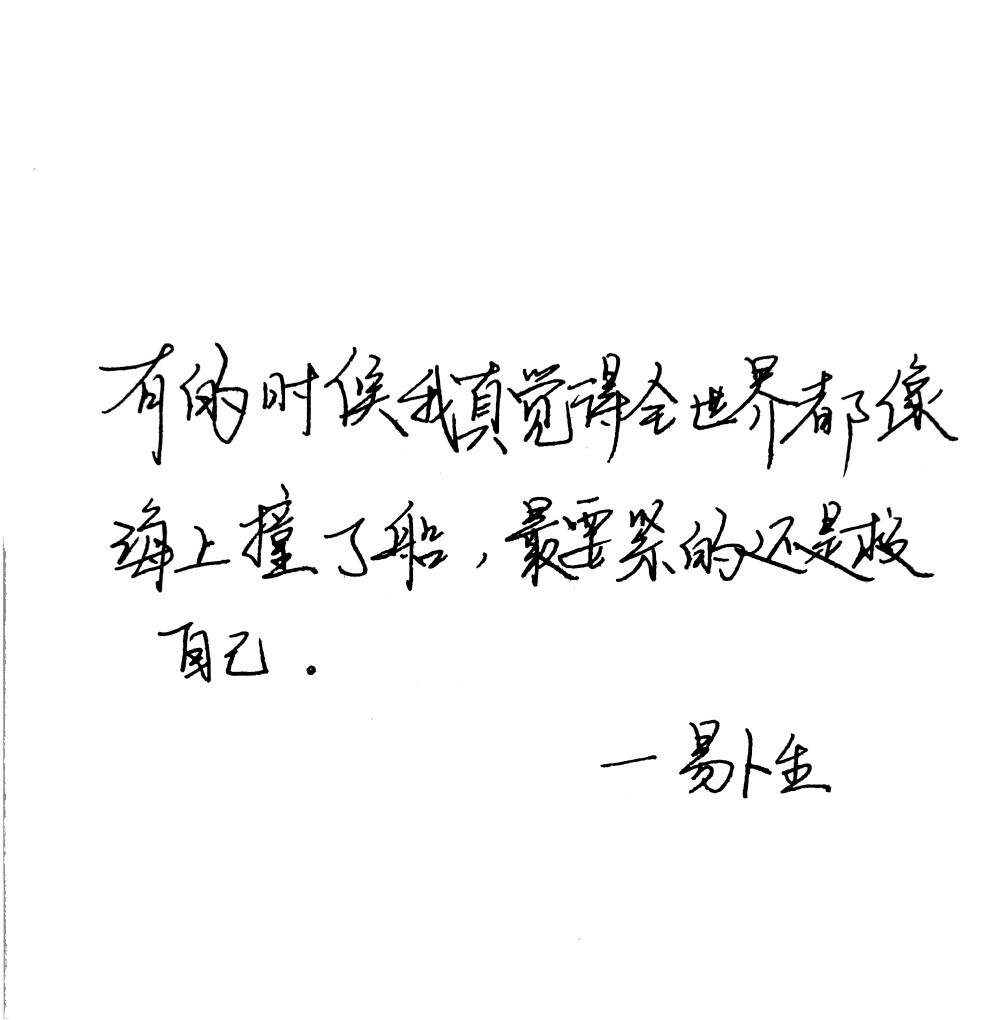 有的时候我真觉得全世界都像
海上撞了船，最要紧的还是救
自己。
一易卜生